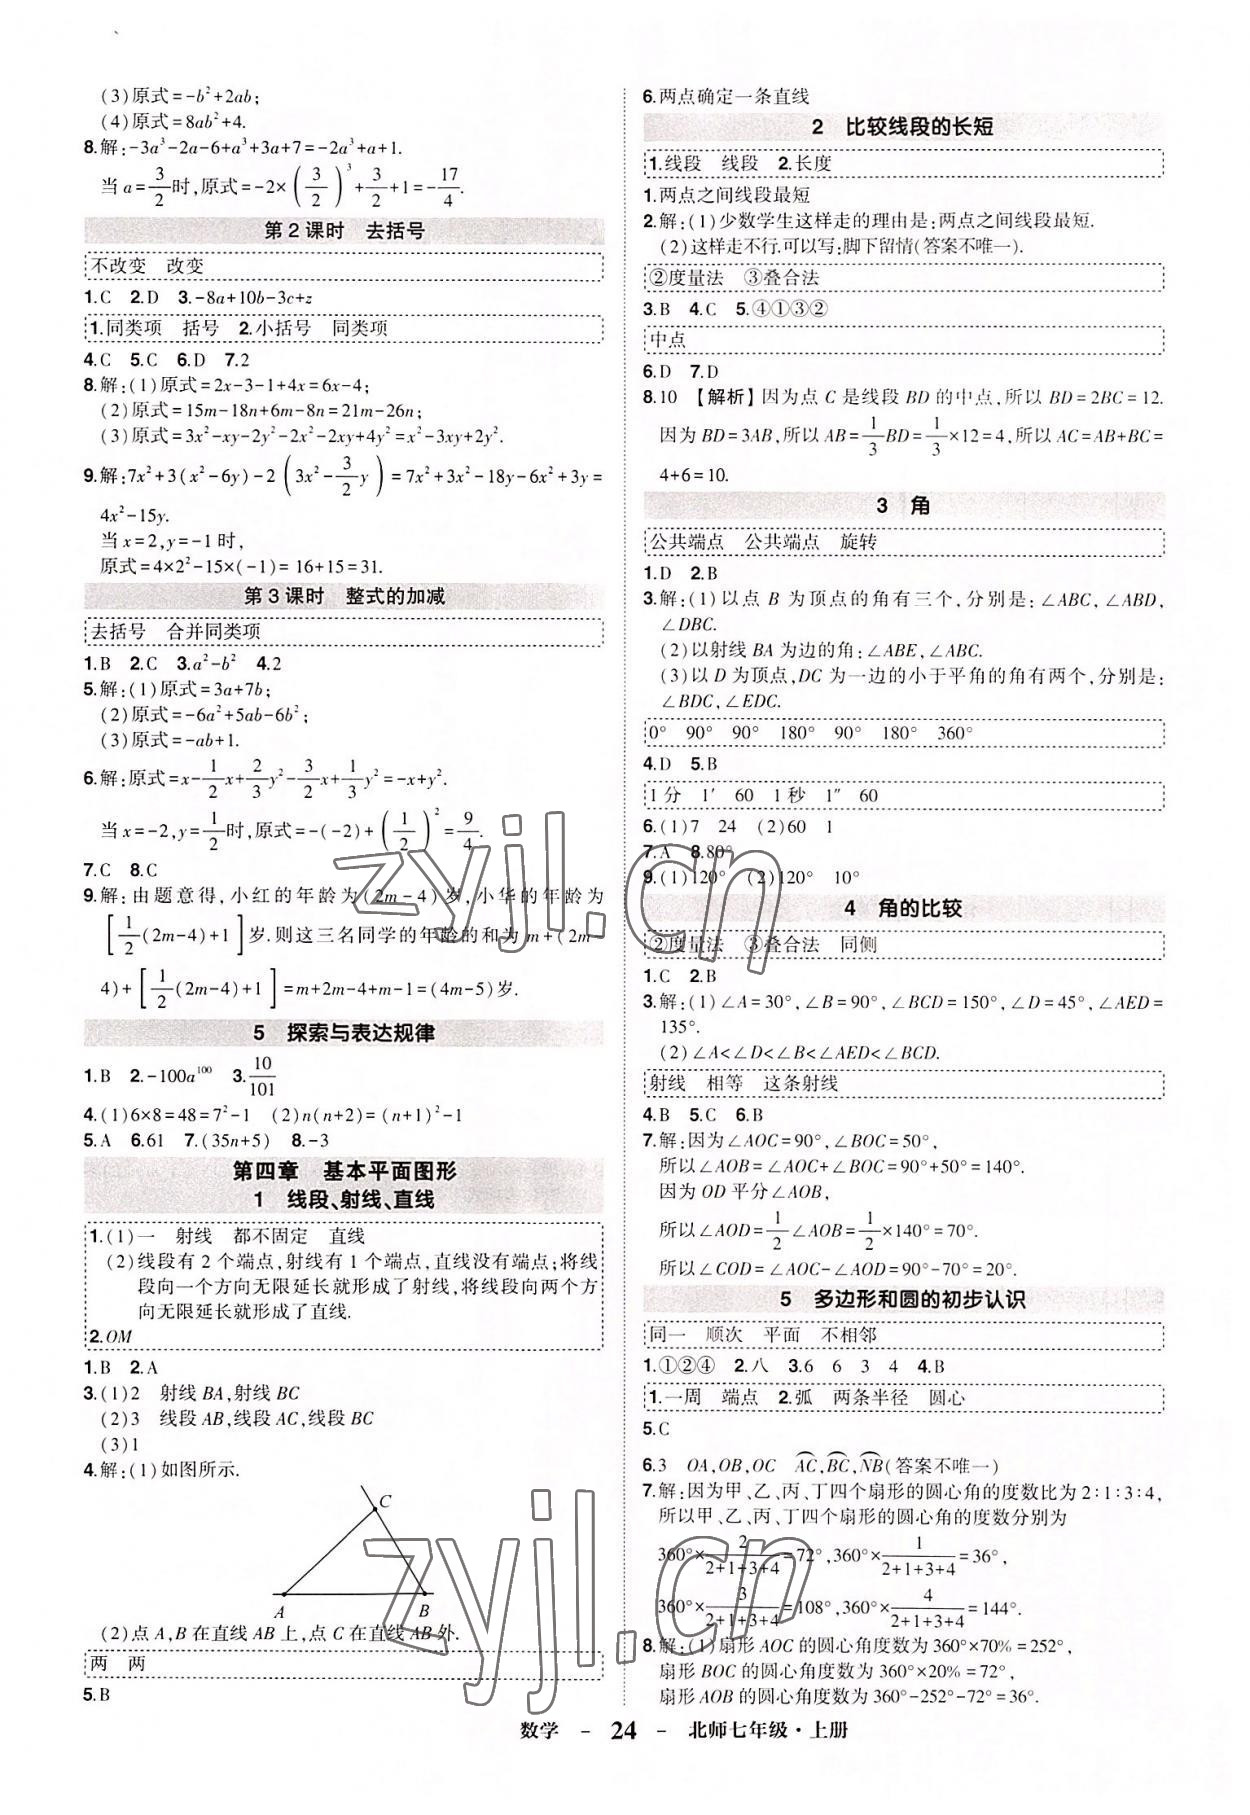 (3)原式=-b²+2ab;
(4)原式=8ab²+4.
8.解:-3a³-2a-6+a³+3a+7=-2a³+a+1.
当a=3/2时,原式=-2×(3/2)³+3/2+1=-17/4.
第2课时 去括号
不改变 改变
1.C 2.D 3.-8a+10b-3c+z
1.同类项 括号 2.小括号 同类项
4.C 5.C 6.D 7.2
8.解:(1)原式=2x-3-1+4x=6x-4;
(2)原式=15m-18n+6m-8n=21m-26n;
(3)原式=3x²-xy-2y²-2x²-2xy+4y²=x²-3xy+2y².
9.解:7x²+3(x²-6y)-2(3x²-3/2y)=7x²+3x²-18y-6x²+3y=
4x²-15y.
当x=2,y=-1时,
原式=4×2²-15×(-1)=16+15=31.
第3课时 整式的加减
去括号 合并同类项
1.B 2.C 3.a²-b² 4.2
5.解:(1)原式=3a+7b;
(2)原式=-6a²+5ab-6b²;
(3)原式=-ab+1.
6.解:原式=x-1/2x+2/3y²-3/2x+1/3y²=-x+y².
当x=-2,y=1/2时,原式=-(-2)+(1/2)²=9/4.
7.C 8.C
9.解:由题意得,小红的年龄为(2m-4)岁,小华的年龄为
[1/2(2m-4)+1]岁.则这三名同学的年龄的和为m+(2m-
4)+[1/2(2m-4)+1]=m+2m-4+m-1=(4m-5)岁.
5 探索与表达规律
1.B 2.-100a¹⁰⁰ 3.10/101
4.(1)6×8=48=7²-1 (2)n(n+2)=(n+1)²-1
5.A 6.61 7.(35n+5) 8.-3
第四章 基本平面图形
1 线段、射线、直线
1.(1)一 射线 都不固定 直线
(2)线段有2个端点,射线有1个端点,直线没有端点;将线
段向一个方向无限延长就形成了射线,将线段向两个方
向无限延长就形成了直线.
2.OM
1.B 2.A
3.(1)2 射线BA,射线BC
(2)3 线段AB,线段AC,线段BC
(3)1
4.解:(1)如图所示.
C
A B
(2)点A,B在直线AB上,点C在直线AB外.
两 两
5.B
6.两点确定一条直线
2 比较线段的长短
1.线段 线段 2.长度
1.两点之间线段最短
2.解:(1)少数学生这样走的理由是:两点之间线段最短.
(2)这样走不行.可以写:脚下留情(答案不唯一).
②度量法 ③叠合法
3.B 4.C 5.④①③②
中点
6.D 7.D
8.10 【解析】因为点C是线段BD的中点,所以BD=2BC=12.
因为BD=3AB,所以AB=1/3BD=1/3×12=4,所以AC=AB+BC=
4+6=10.
3 角
公共端点 公共端点 旋转
1.D 2.B
3.解:(1)以点B为顶点的角有三个,分别是:∠ABC,∠ABD,
∠DBC.
(2)以射线BA为边的角:∠ABE,∠ABC.
(3)以D为顶点,DC为一边的小于平角的角有两个,分别是:
∠BDC,∠EDC.
0° 90° 90° 180° 90° 180° 360°
4.D 5.B
1分 1′ 60 1秒 1″ 60
6.(1)7 24 (2)60 1
7.A 8.80°
9.(1)120° (2)120° 10°
4 角的比较
②度量法 ③叠合法 同侧
1.C 2.B
3.解:(1)∠A=30°,∠B=90°,∠BCD=150°,∠D=45°,∠AED=
135°.
(2)∠A<∠D<∠B<∠AED<∠BCD.
射线 相等 这条射线
4.B 5.C 6.B
7.解:因为∠AOC=90°,∠BOC=50°,
所以∠AOB=∠AOC+∠BOC=90°+50°=140°.
因为OD平分∠AOB,
所以∠AOD=1/2∠AOB=1/2×140°=70°.
所以∠COD=∠AOC-∠AOD=90°-70°=20°.
5 多边形和圆的初步认识
同一 顺次 平面 不相邻
1.①②④ 2.八 3.6 6 3 4 4.B
1.一周 端点 2.弧 两条半径 圆心
5.C
6.3 OA,OB,OC A͡C,B͡C,N͡B(答案不唯一)
7.解:因为甲、乙、丙、丁四个扇形的圆心角的度数比为2:1:3:4,
所以甲、乙、丙、丁四个扇形的圆心角的度数分别为
360°×2/(2+1+3+4)=72°,360°×1/(2+1+3+4)=36°,
360°×3/(2+1+3+4)=108°,360°×4/(2+1+3+4)=144°.
8.解:(1)扇形AOC的圆心角度数为360°×70%=252°,
扇形BOC的圆心角度数为360°×20%=72°,
扇形AOB的圆心角度数为360°-252°-72°=36°.
数学 - 24 - 北师七年级·上册
zyjl.cn
zyjl.cn